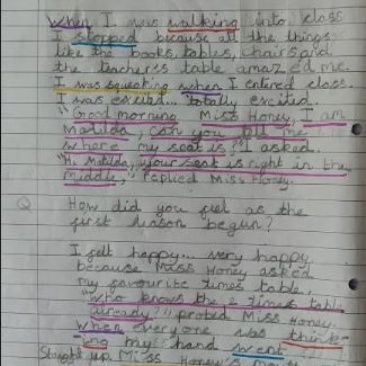 When I was walking into class
I stopped because all the things
like the books, tables, chairs and
the teacher's table amazed me.
I was squeaking when I entired class.
I was excited... totally excited.
"Good morning Miss Honey, I am
Matilda, can you tell me
where my seat is?" I asked.
"Hi Matilda, your seat is right in the
middle," replied Miss Honey.
Q How did you feel as the
first lesson begun?
I felt happy... very happy
because Miss Honey asked
my favourite times table.
"Who knows the 2 times tabl
already?" probed Miss Honey.
When everyone was think-
ing my hand went
Straight up. Miss Honey's